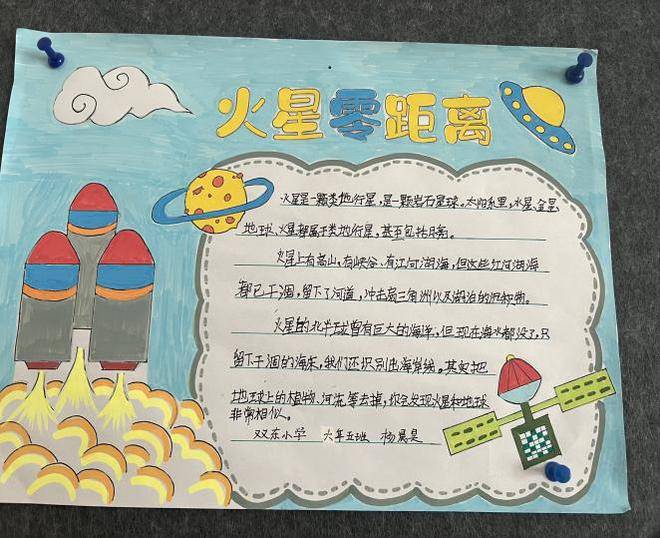 火星零距离
火星是一颗类地行星,是一颗岩石星球。太阳系里,水星、金星、
地球、火星都属于类地行星,甚至包括月亮。
火星上有高山、有峡谷、有江河湖海,但这些江河湖海
都已干涸,留下了河道,冲击扇三角洲以及湖泊的沉积物。
火星的北半球曾有巨大的海洋,但现在海水都没了,只
留下干涸的海床,我们还识别出海岸线。其实把
地球上的植物、河流等去掉,你会发现火星和地球
非常相似。
双东小学 六年五班 杨晨昊